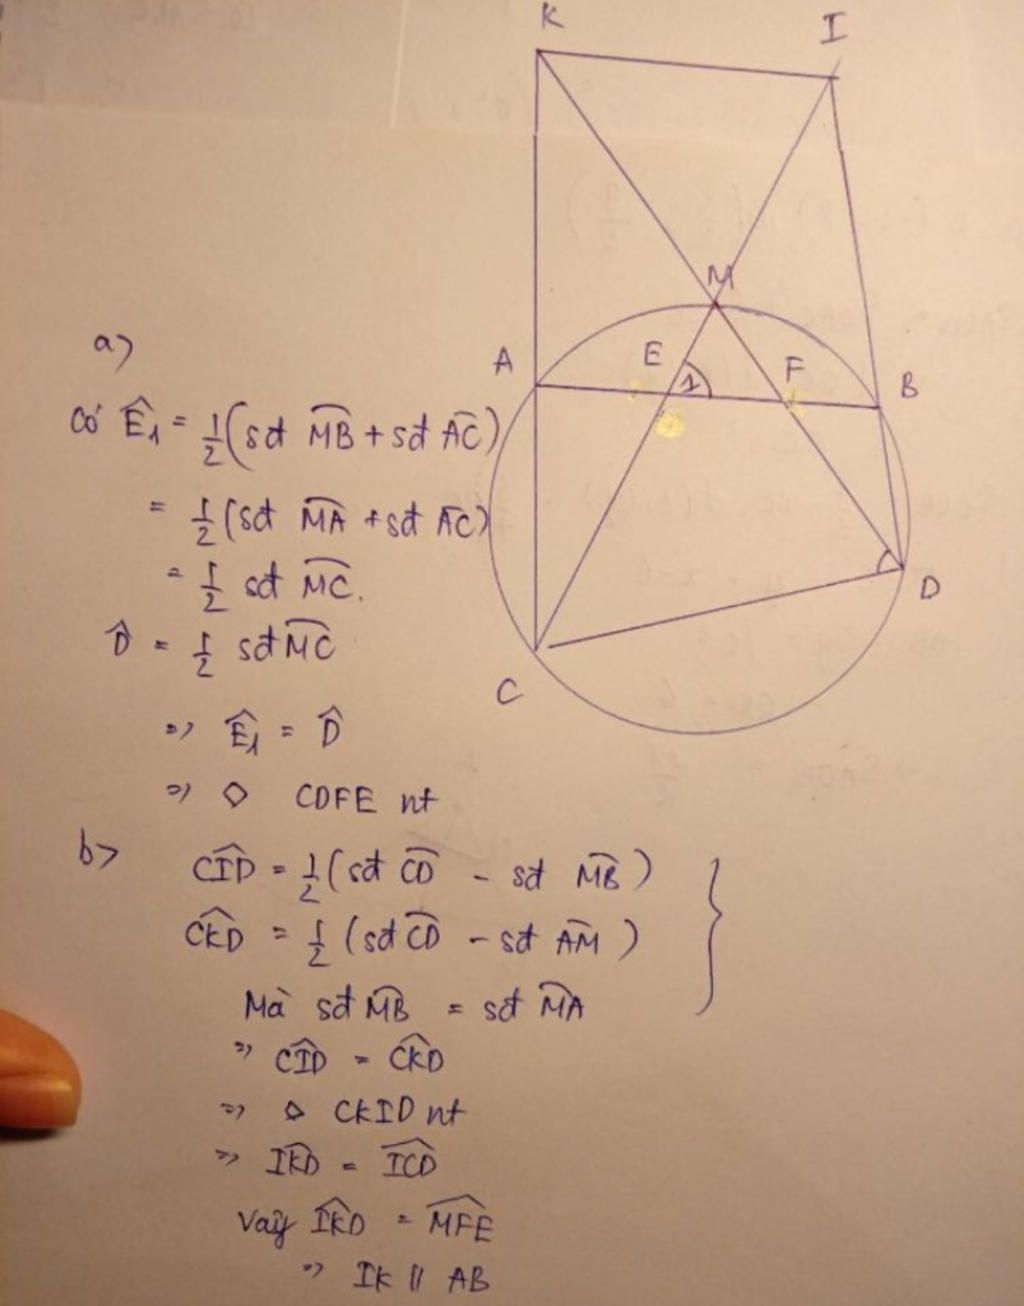 K
I
M
A
E
1
F
B
D
C
a)
Có Ê₁ = 1/2 (sđ MB̑ + sđ AC̑)
= 1/2 (sđ MȂ + sđ AC̑)
= 1/2 sđ MC̑.
D̂ = 1/2 sđ MC̑
=> Ê₁ = D̂
=> ◇ CDFE nt
b>
CÎD = 1/2 (sđ CD̑ - sđ MB̑)
CK̂D = 1/2 (sđ CD̑ - sđ AM̑)
Mà sđ MB̑ = sđ MȂ
=> CÎD = CK̂D
=> ◇ CKID nt
=> IK̂D = IĈD
Vậy IK̂D = MF̂E
=> IK // AB